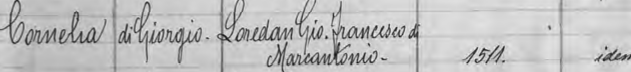 Cornelia di Giorgio. Loredan Gio. Francesco di
Marcantonio. 1511. idem